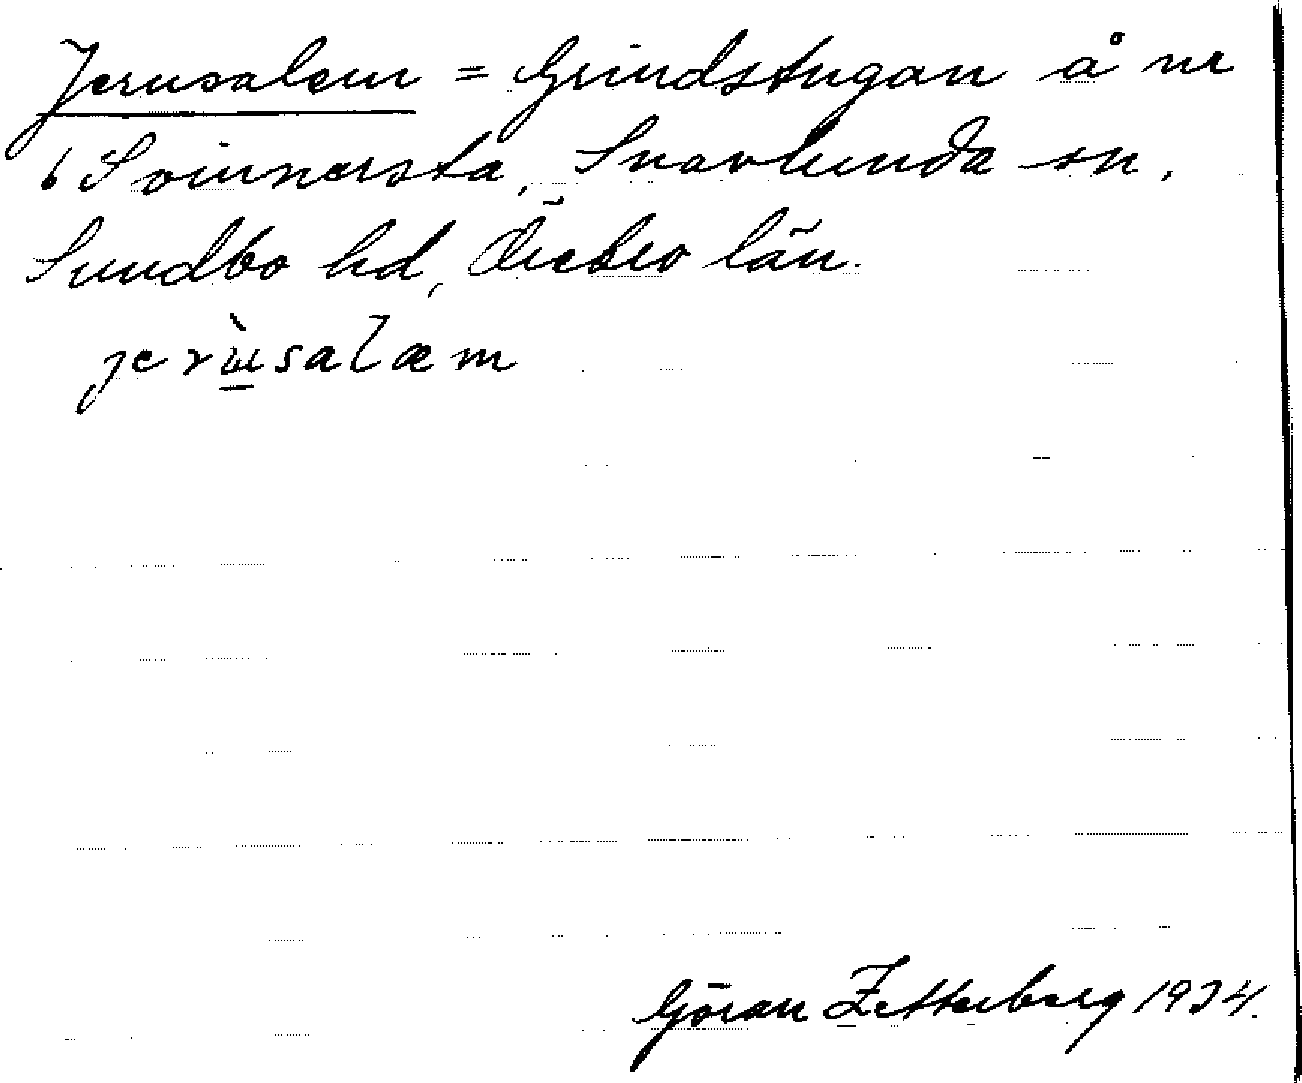 Jerusalem = Grindstugan å nr
6 Svinnersta, Snavlunda sn,
Sundbo hd, Örebro län.
jerùsalæm
Göran Zetterberg 1934.